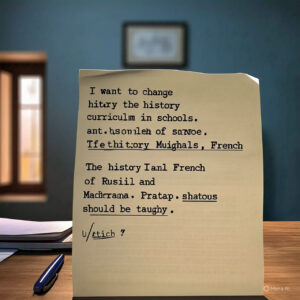 I want to change
hitɛry the history
curriculm in schools.
ant.hsomleh of sarwoe.
Tfethitɔry Muighals, French
The history Ianl French
of Rusiil and
Madirrama. Pratap. shatous
should be taughy.
u/etich ?
Meta AI